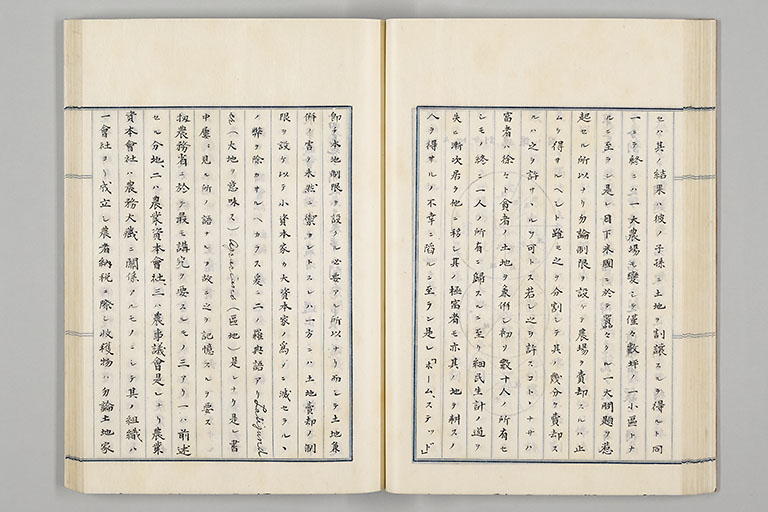 セハ其ノ結果ハ彼ノ子孫ニ土地ノ割譲スルヲ得ルト同
一ニテ終ニハ一大農場モ変シテ僅々数坪ノ一小區トナ
ルニ至ラン是レ目下米國ニ於テ囂々タル一大問題ヲ惹
起セル所以ナリ勿論制限ヲ設ケテ農場ヲ賣却スルハ止
ムヲ得サルヘシト雖モ之ヲ分割シテ其ノ幾分ヲ賣却ス
ルハ之ヲ許サヽルヲ可トス若シ之ヲ許スコトヽナサハ
富者ハ徐々ト貧者ノ土地ヲ兼併シ初メ數十人ノ所有セ
シモノ終ニ一人ノ所有ニ歸スルニ至リ細民生計ノ道ヲ
失ヒ漸次居ヲ他ニ移シ其ノ極富者モ亦其ノ地ヲ耕スノ
人ヲ得サルノ不幸ニ陥ルニ至ラン是レ「ホーム、ステッド」
即チ本地制限ヲ設クルノ必要アル所以ナリ而シテ土地兼
併ノ害ヲ未然ニ禦カントスレハ一方ニハ土地賣却ノ制
限ヲ設ケ以テ小資本家カ大資本家ノ為メニ滅セラルヽ
ノ弊ヲ除カサルヘカラス爰ニ二ノ羅典語アリ Latifund
es(大地ヲ意味ス)(區地)是レナリ是レ書
中屢々見ル所ノ語ナルヲ故ニ之ヲ記憶スルヲ要ス
扨農務省ニ於テ最モ講究ヲ要スルモノ三アリ一ハ前述
セル分地、二ハ農業資本會社三ハ農事議會是レナリ農業
資本會社ハ農務大臧ニ關係ノルモノニシテ其ノ組織ハ
一會社ヲ成立シ農者納税ニ際シ收穫物ハ勿論土地家